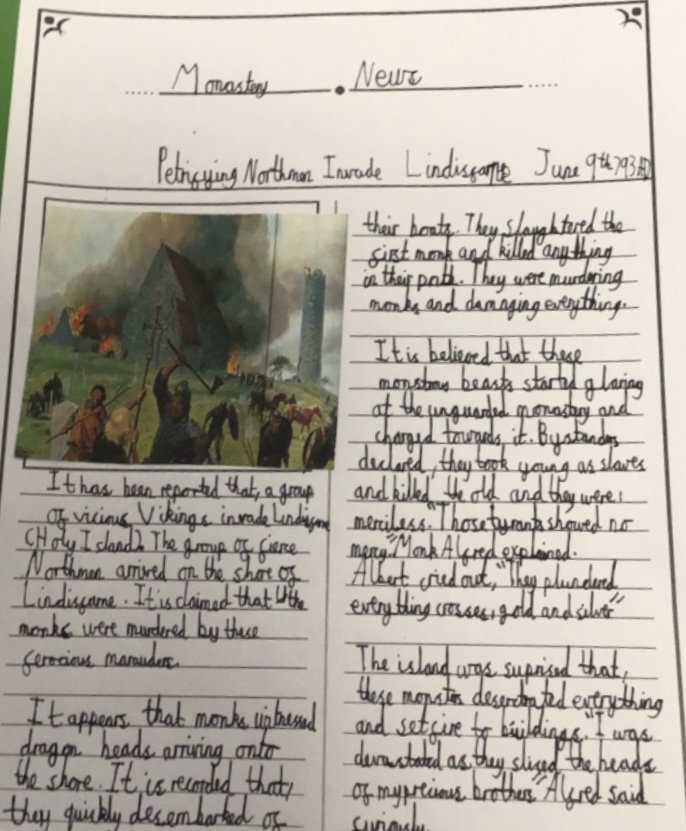 Monastery . News
Petrifying Northmen Invade Lindisfarne June 9th 793AD
It has been reported that, a group
of vicious Vikings invade Lindisfarne
(Holy Island). The group of fierce
Northmen arrived on the shore of
Lindisfarne. It is claimed that the
monks were murdered by these
ferocious marauders.
It appears that monks witnessed
dragon heads arriving onto
the shore. It is recorded that,
they quickly desembarked of
their boats. They slaughtered the
first monk and killed anything
in their path. They were murdering
monks and damaging everything.
It is believed that these
monstrous beasts started glaring
at the unguarded monastery and
charged towards it. Bystanders
declared, they took young as slaves
and killed the old and they were
merciless. "Those tyrants showed no
mercy." Monk Alfred explained.
Albert cried out, "They plundered
everything crosses, gold and silver"
The island was suprised that,
these monsters desecrated everything
and set fire to buildings. "I was
devastated as they sliced the heads
of my precious brothers" Alfred said
furiously.